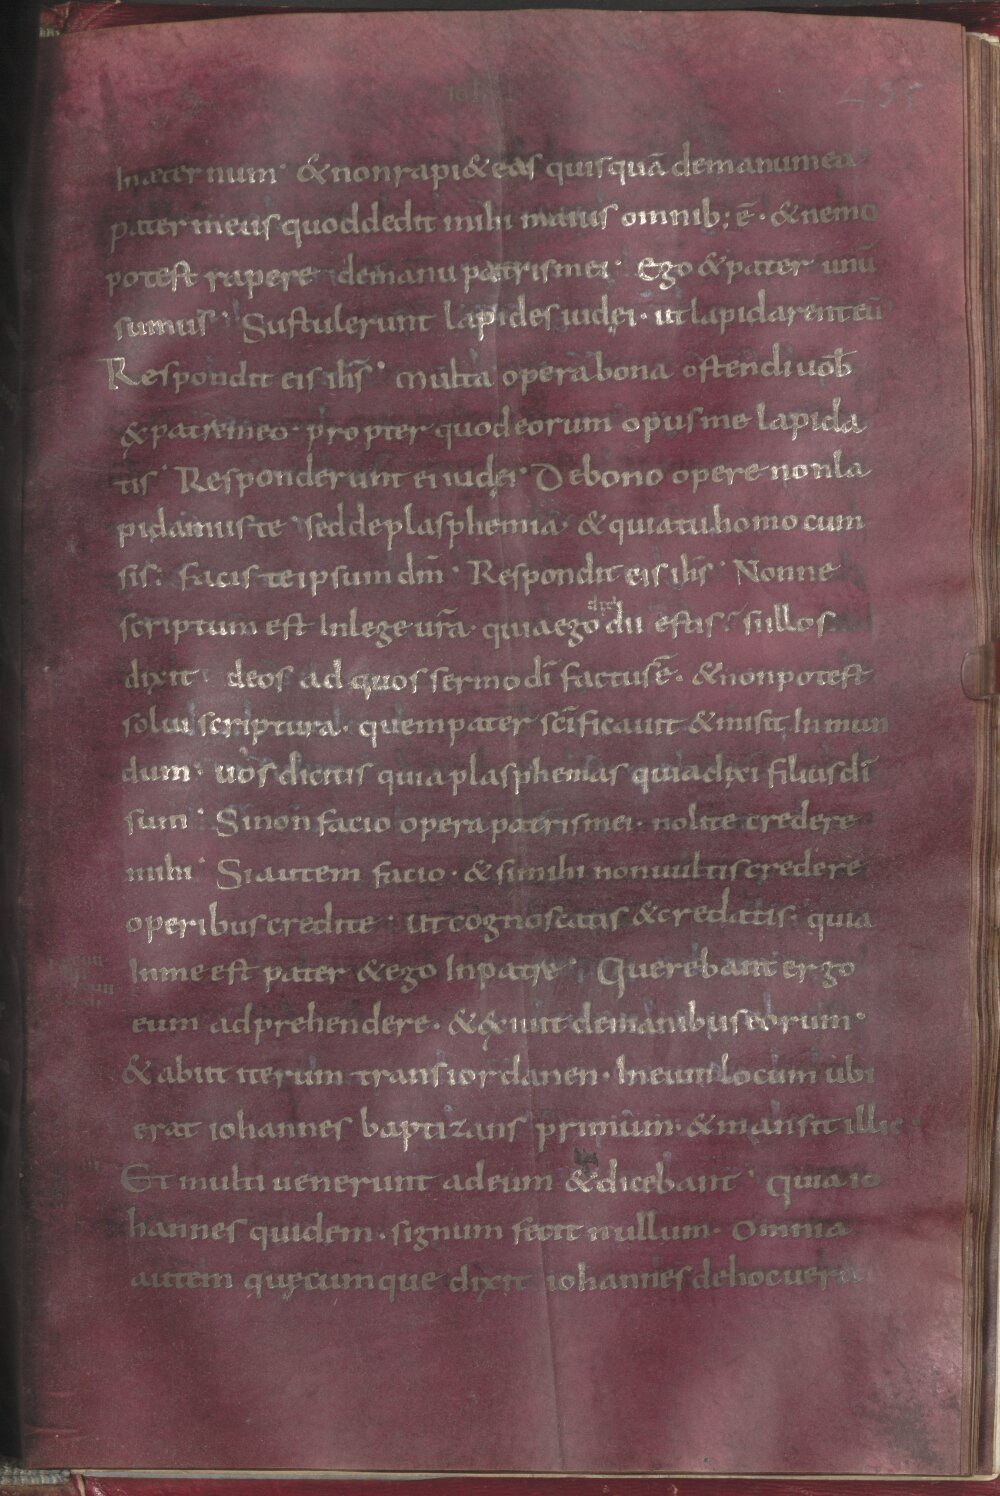 ioh
435
In aeternum · & non rapi&eas quisquā demanumea
pater meus quoddedit mihi maius omnib; ē · &nemo
potest rapere demanu patrismei · Ego &pater unū
sumus · Sustulerunt lapides iudęi · utlapidarenteū
Respondit eis ihs̄ · Multa opera bona ostendi uob̄
&patremeo · propter quodeorum opusme lapida
tis · Responderunt ei iudęi · Debono opere nonla
pidamuste · seddeplasphemia · & quiatuhomo cum
sis · facis teipsum dm̄ · Respondit eis ihs̄ · Nonne
scriptum est Inlege ur̄a · quiaego dixi dii estis · sillos
dixit deos ad quos sermo dī factusē · &nonpotest
solui scriptura · quempater sc̄ificauit &misit Inmun
dum · uos dicitis quia plasphemas quiadixi filiusdī
sum · Sinon facio opera patrismei · nolite credere
mihi · Siautem facio · & simihi nonuultis credere
operibus credite · ut cognoscatis &credatis · quia
Inme est pater &ego Inpatre · Querebant ergo
eum adprehendere · &exiuit demanibus eorum ·
& abiit iterum trans iordanen · Ineum locum ubi
erat iohannes baptizans primum · &mansit illic
Et multi uenerunt adeum &dicebant · quia io
hannes quidem · signum fecit nullum · Omnia
autem quęcumque dixit iohannes dehoc uera